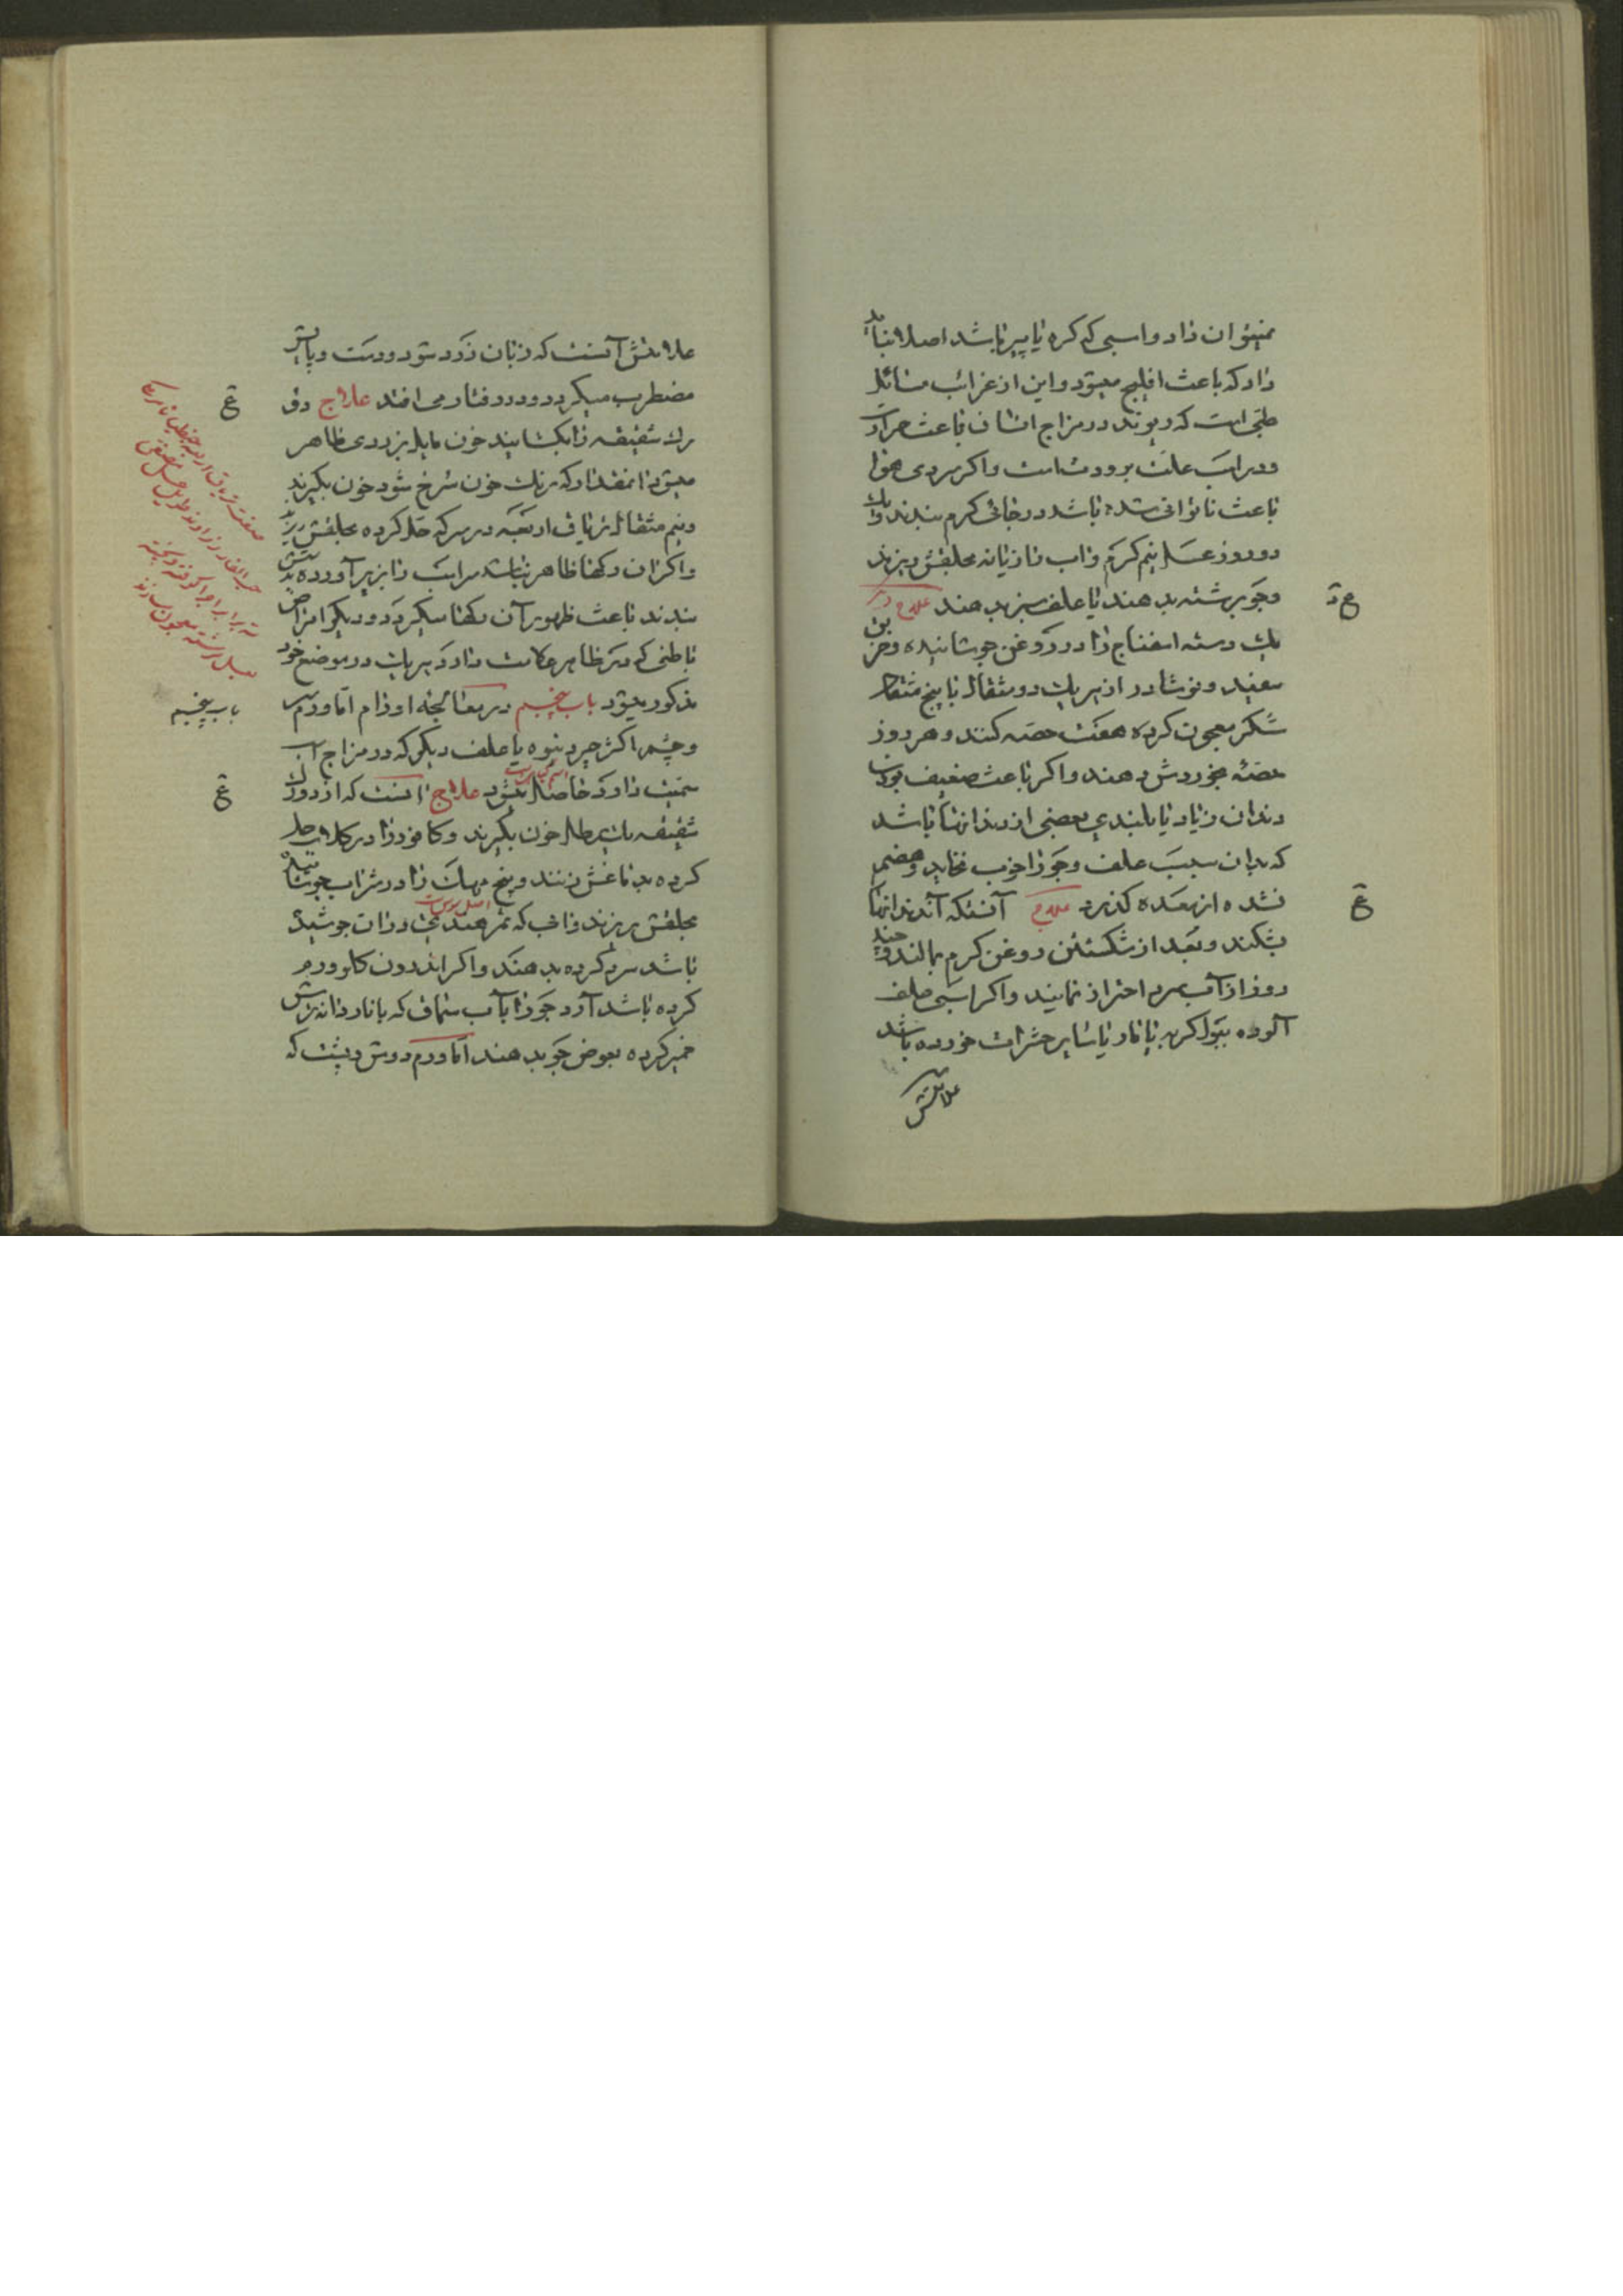 نمیتوان داد و اسبی که کره یا پیر باشد اصلا نباید
داد که باعث افلیج میشود و این از غرائب مسائل
طبی است که ریوند در مزاج انسان باعث حرارت
و در اسب علت برودتست و اگر سردی هوا
باعث ناتوانی شده باشد در جائی گرم ببندند و یک
دو روز عسل نیم گرم و اب رازیانه بحلقش بریزند
و جو برشته بدهند یا علف سبز بدهند علاج دیگر
یک دسته اسفناج را در روغن جوشانیده و خربق
سفید و نوشادر از هر یک دو مثقال با پنج مثقال
شکر معجون کرده هفت حصه کنند و هر روز
حصّه بخوردش دهند و اگر باعث ضعیف بودن
دندان زیاد یا بلندی بعضی از دندانها باشد
که بدان سبب علف و جو را خوب نخاید و هضم
نشده از معده گذرد علاج آنستکه آن دندانها
بشکنند و بعد از شکستن روغن گرم بمالند و چند
روز از آب سرد احتراز نمایند و اگر اسبی علف
آلوده ببول کربه یا مار یا سایر حشرات خورده باشد
علامتش
ع د
ع
علامتش آنست که زبان زرد شود و دست و پایش
مضطرب میگردد و در رفتار می افتد علاج دو
رک شقیقه را بکشایند خون مایل بزردی ظاهر
میشود انمقدار که رنک خون سُرخ شود خون بگیرند
و نیم مثقال تریاق اربعه در سرکه حل کرده بحلقش ریزند
و اگر ان رکها ظاهر نباشد سر اسب را بزیر آورده دستش
ببندند باعث ظهور آن رکها میگردد و دیگر امراض
باطنی که در ظاهر علامت دارد هر یک در موضع خود
مذکور میشود باب پنجم در معالجهٔ اورام اما ورم سر
و چشم اکثر چرد نبوه یا علف دیگر که در مزاج اسب
سمیت دارد حاصل میشود علاج انست که از دو رک
شقیقه یک رطل خون بگیرند و کافور را در کلاب حل
کرده بدماغش زنند و بیخ مهک را در شراب جوشانیده
بحلقش بریزند و ابی که تمر هندی در ان جوشیده
باشد سرد کرده بدهند و اگر اندرون کلو ورم
کرده باشد آرد جو را بآب سماق که با ناردانه ترش
خمیر کرده بعوض جو بدهند اما ورم دوش و پشت که
ع
باب پنجم
ع